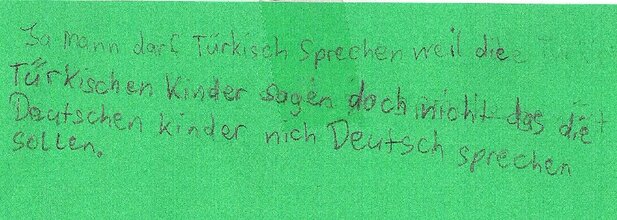 Ja mann darf Türkisch Sprechen weil die
Türkischen Kinder sagen doch nicht das die
Deutschen kinder nich Deutsch sprechen
sollen.